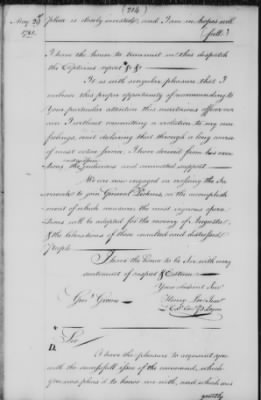 (214)
May 24th 1781.
place is closely invested, and I am in hopes will
fall.)
I have the honor to transmit in this dispatch
the Captains report &
It is with singular pleasure that I
embrace this proper opportunity of recommending to
Your particular attention this meritorious officer nor
can I without committing a violation to my own
feelings, omit declaring that through a long course
of most active service, I have derived from his
exertions the and animated support
We are now engaged in crossing the
to join General Pickens, on the
of which measures the most vigorous
will be adopted for the of Augusta
& the liberation of these and distressed
People
I have the honor to be Sir with every
sentiment of respect & Esteem
Your obedient Servt
Genl Greene
Henry Lee Junr
Sir
I have the pleasure to acquaint you
with the successfull of the command, which
you was pleas'd to honor me with, and which was
greatly